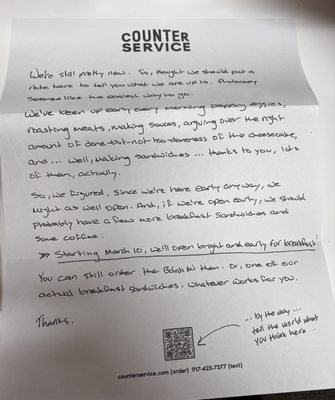 COUNTER
SERVICE
We're still pretty new. So, thought we should put a
note here to tell you what we are up to. Photocopy
seemed like the easiest way to go.
We've been up early every morning prepping veggies,
roasting meats, making sauces, arguing over the right
amount of done-but-not-too-doneness of the cheesecake,
and... well, making sandwiches... thanks to you, lots
of them, actually.
So, we figured, since we're here early anyway, we
might as well open. And, if we're open early, we should
probably have a few more breakfast sandwiches and
some coffee.
Starting March 10, we'll open bright and early for breakfast!
You can still order the Bánh Mì then. Or, one of our
actual breakfast sandwiches. Whatever works for you.
Thanks.
... by the way ...
tell the world what
you think here ...
counterservice.com (order) 917-423-7377 (text)